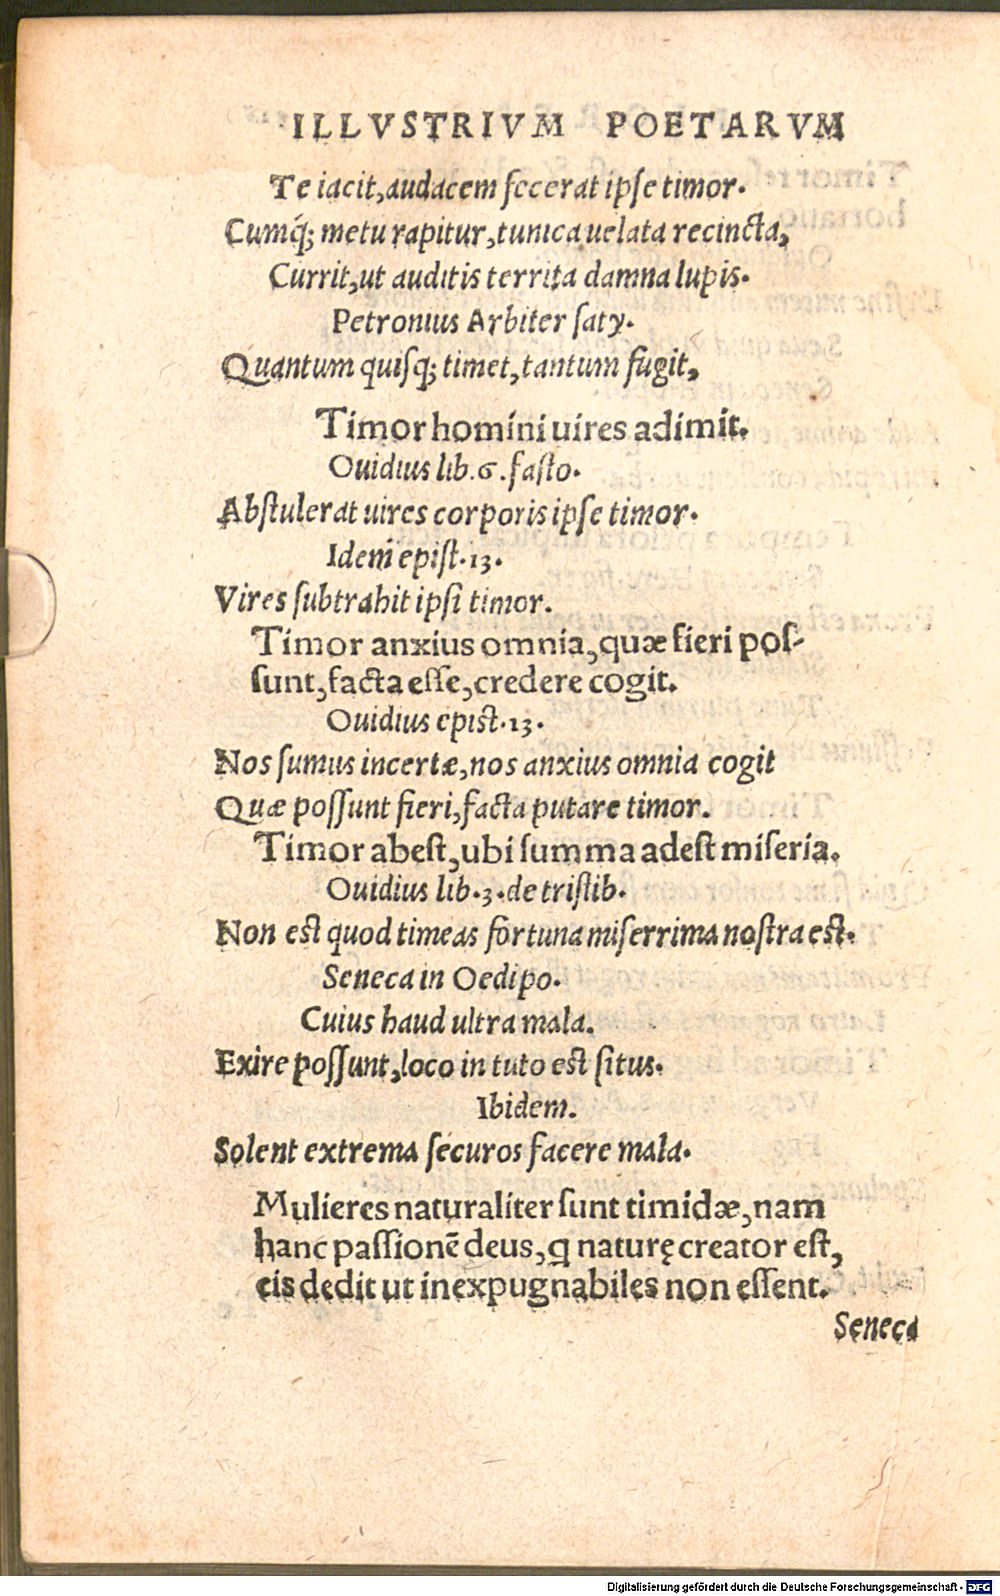 ILLVSTRIVM POETARVM
Te iacit, audacem fecerat ipſe timor.
Cumq́; metu rapitur, tunica uelata recincta,
Currit, ut auditis territa damna lupis.
Petronius Arbiter ſaty.
Quantum quiſq; timet, tantum fugit,
Timor homini uires adimit.
Ouidius lib. 6. faſto.
Abſtulerat uires corporis ipſe timor.
Idem epiſt. 13.
Vires ſubtrahit ipſi timor.
Timor anxius omnia, quæ fieri poſ-
ſunt, facta eſſe, credere cogit.
Ouidius epiſt. 13.
Nos ſumus incertæ, nos anxius omnia cogit
Quæ poſſunt fieri, facta putare timor.
Timor abeſt, ubi ſumma adeſt miſeria.
Ouidius lib. 3. de triſtib.
Non eſt quod timeas fortuna miſerrima noſtra eſt.
Seneca in Oedipo.
Cuius haud ultra mala.
Exire poſſunt, loco in tuto eſt ſitus.
Ibidem.
Solent extrema ſecuros facere mala.
Mulieres naturaliter ſunt timidæ, nam
hanc paſſionē deus, ꝗ naturę creator eſt,
eis dedit ut inexpugnabiles non eſſent.
Seneca
Digitalisierung gefördert durch die Deutsche Forschungsgemeinschaft - DFG